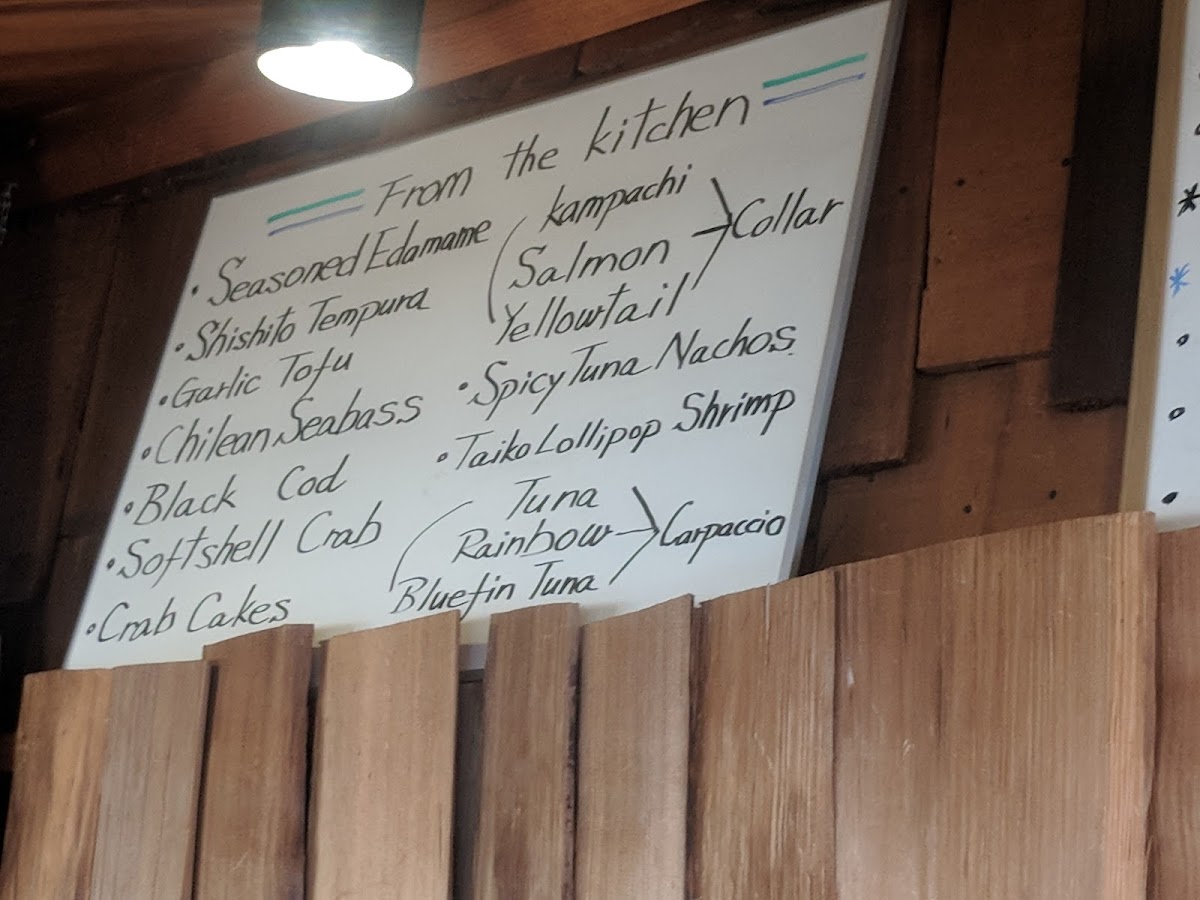 From the kitchen
• Seasoned Edamame
• Shishito Tempura
• Garlic Tofu
• Chilean Seabass
• Black Cod
• Softshell Crab
• Crab Cakes
Kampachi
Salmon
Yellowtail
Collar
• Spicy Tuna Nachos
• Taiko Lollipop Shrimp
Tuna
Rainbow
Bluefin Tuna
Carpaccio